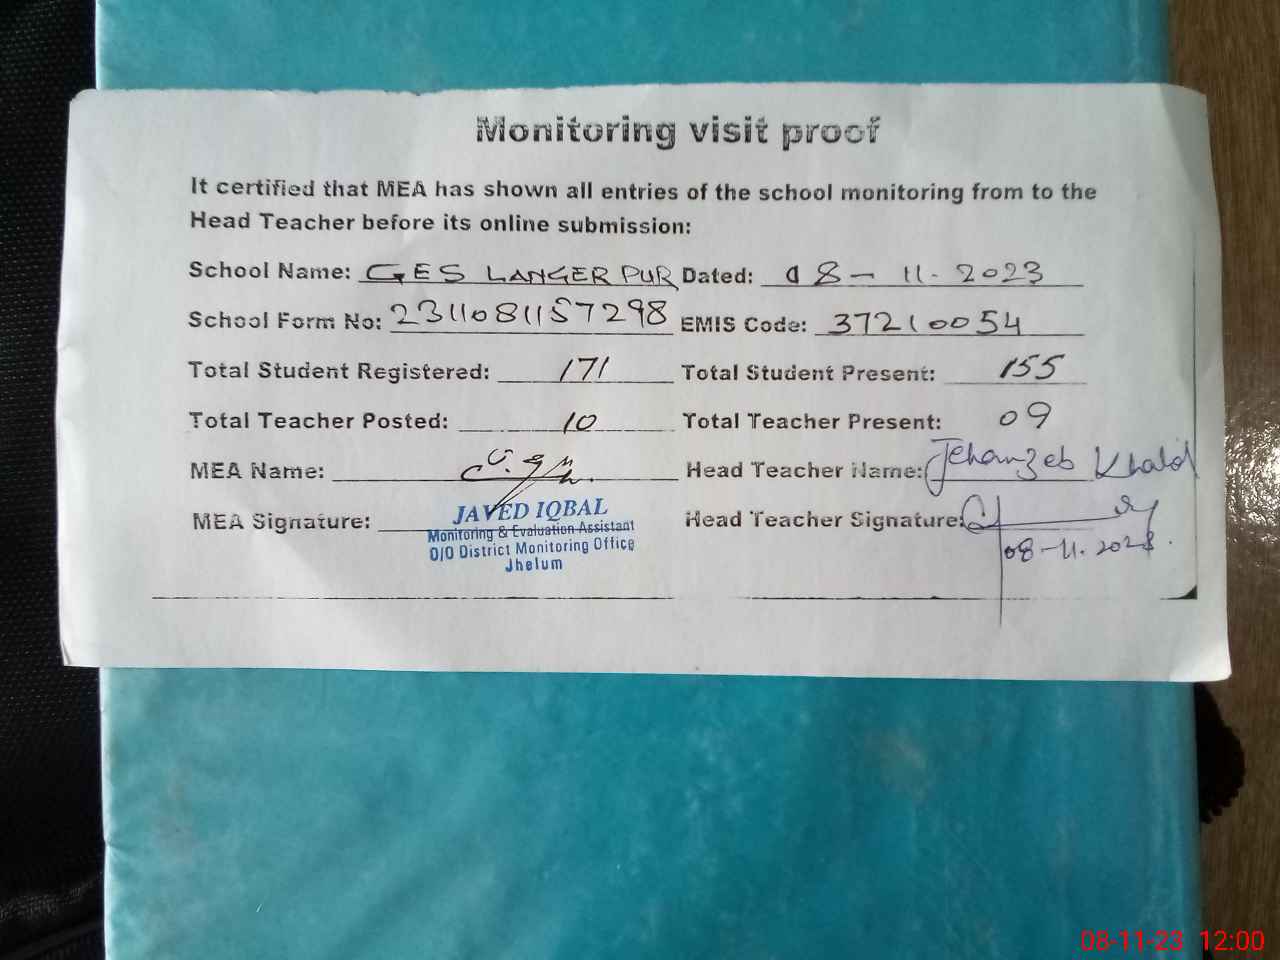 Monitoring visit proof
It certified that MEA has shown all entries of the school monitoring from to the
Head Teacher before its online submission:
School Name: GES LANGER PUR Dated: 08-11-2023
School Form No: 2311081157298 EMIS Code: 37210054
Total Student Registered: 171 Total Student Present: 155
Total Teacher Posted: 10 Total Teacher Present: 09
MEA Name: Head Teacher Name: Jehanzeb Khalid
MEA Signature: Head Teacher Signature:
JAVED IQBAL
Monitoring & Evaluation Assistant
O/O District Monitoring Office
Jhelum
08-11-2023.
08-11-23 12:00